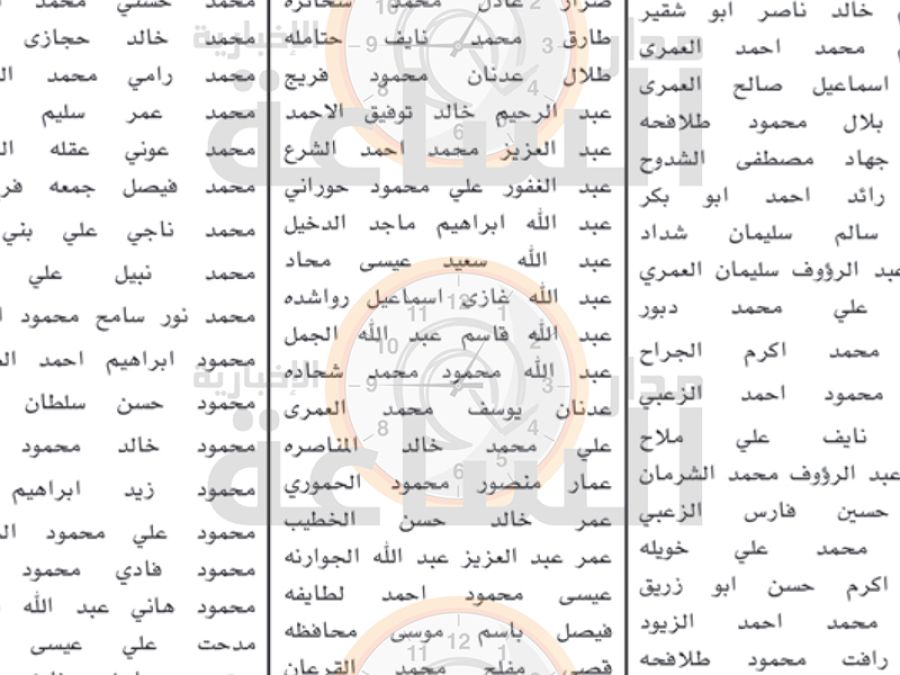 خالد ناصر ابو شقير
محمد احمد العمرى
اسماعيل صالح العمرى
بلال محمود طلافحه
جهاد مصطفى الشدوح
رائد احمد ابو بكر
سالم سليمان شداد
عبد الرؤوف سليمان العمري
علي محمد دبور
محمد اكرم الجراح
محمود احمد الزعبي
نايف علي ملاح
عبد الرؤوف محمد الشرمان
حسين فارس الزعبي
محمد علي خويله
اكرم حسن ابو زريق
محمد احمد الزيود
رافت محمود طلافحه
ضرار عادل محمد شحاتره
طارق محمد نايف حتامله
طلال عدنان محمود فريج
عبد الرحيم خالد توفيق الاحمد
عبد العزيز محمد احمد الشرع
عبد الغفور علي محمود حوراني
عبد الله ابراهيم ماجد الدخيل
عبد الله سعيد عيسى محاد
عبد الله غازي اسماعيل رواشده
عبد الله قاسم عبد الله الجمل
عبد الله محمود محمد شحاده
عدنان يوسف محمد العمرى
علي محمد خالد المناصره
عمار منصور محمود الحموري
عمر خالد حسن الخطيب
عمر عبد العزيز عبد الله الجوارنه
عيسى محمود احمد لطايفه
فيصل باسم موسى محافظه
قصي مفلح محمد القرعان
محمد حسني محمد
محمد خالد حجازى
محمد رامي محمد
محمد عمر سليم
محمد عوني عقله
محمد فيصل جمعه
محمد ناجي علي بني
محمد نبيل علي
محمد نور سامح محمود
محمود ابراهيم احمد
محمود حسن سلطان
محمود خالد محمود
محمود زيد ابراهيم
محمود علي محمود
محمود فادي محمود
محمود هاني عبد الله
مدحت علي عيسى
مدار الساعة الإخبارية